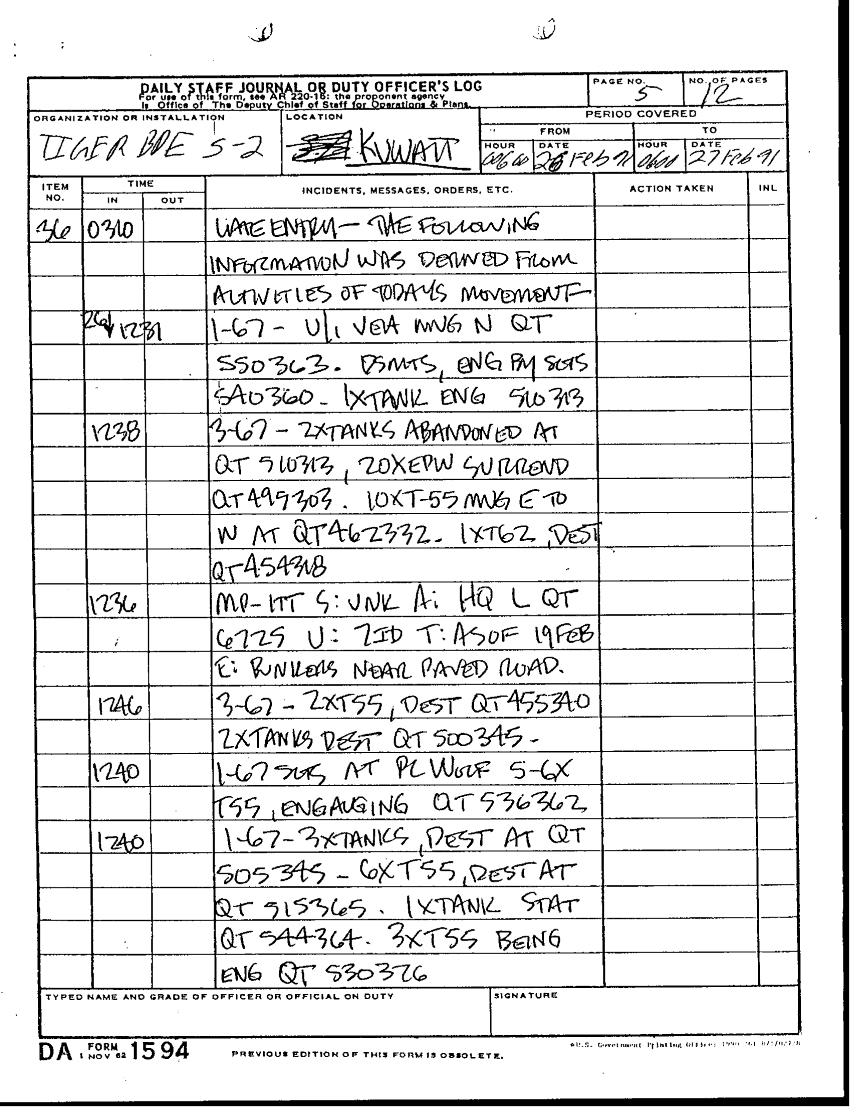 DAILY STAFF JOURNAL OR DUTY OFFICER'S LOG
For use of this form, see AR 220-15: the proponent agency
is Office of The Deputy Chief of Staff for Operations & Plans.
PAGE NO.
5
NO. OF PAGES
12
ORGANIZATION OR INSTALLATION
TIGER BDE S-2
LOCATION
KUWAIT
PERIOD COVERED
FROM
TO
HOUR
0600
DATE
26 Feb 91
HOUR
0600
DATE
27 Feb 91
ITEM NO.
TIME
IN
OUT
INCIDENTS, MESSAGES, ORDERS, ETC.
ACTION TAKEN
INL
36 0310 LATE ENTRY - THE FOLLOWING
INFORMATION WAS DERIVED FROM
ACTIVITIES OF TODAYS MOVEMENT-
26/ 1231 1-67 - U/I VEH MVG N QT
550363. DSMTS, ENG
540360 - 1XTANK ENG 510313
1238 3-67 - 2XTANKS ABANDONED AT
QT 510313, 20XEPW SURREND
QT 495303. 10XT-55 MVG E TO
W AT QT462332 - 1XT62, DEST
QT454318
1236 S: UNK A: HQ L QT
6725 U: T: AS OF 19FEB
E: BUNKERS NEAR PAVED ROAD.
1246 3-67 - 2XT55, DEST QT455340
2XTANKS DEST QT 500345 -
1240 1-67 AT PL WOLF 5-6X
T55, ENGAUGING QT 536362
1240 1-67 - 3XTANKS, DEST AT QT
505345 - 6XT55, DEST AT
QT 515365. 1XTANK STAT
QT 544364. 3XT55 BEING
ENG QT 530376
TYPED NAME AND GRADE OF OFFICER OR OFFICIAL ON DUTY
SIGNATURE
DA FORM 1 NOV 62 1594
PREVIOUS EDITION OF THIS FORM IS OBSOLETE.
U.S. Government Printing Office: 1990